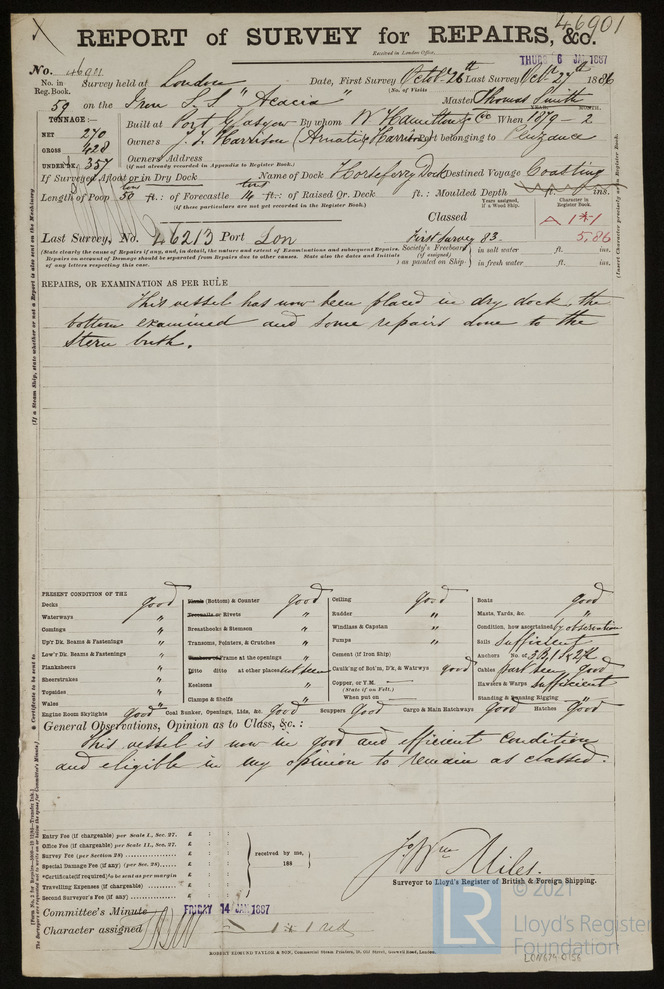 46901
REPORT of SURVEY for REPAIRS, &c.
Received in London Office,
THURS 6 JAN 1887
No. 46901
No. in Reg. Book. Survey held at London Date, First Survey Octob. 26th Last Survey Octb. 27th 1886
(No. of Visits
59 on the Iron S.S. "Acacia" Master Thomas Smith
TONNAGE:— Built at Port Glasgow By whom W Hamilton & Co When 1879 – 2
YEAR. MONTH.
NET 270
GROSS 428
UNDER DK. 357
Owners J. F. Harrison Port belonging to Penzance
Owners Address
(if not already recorded in Appendix to Register Book.)
If Surveyed Afloat or in Dry Dock Name of Dock Horseferry Dock Destined Voyage Coasting
Length of Poop 50 ft.: of Forecastle 14 ft.: of Raised Qr. Deck ft.: Moulded Depth ft. ins.
(if these particulars are not yet recorded in the Register Book.)
Years assigned, if a Wood Ship.
Character in Register Book.
Classed A 1
5,86
Last Survey, No. 46213 Port Lon First Survey 83.
(State clearly the cause of Repairs if any, and, in detail, the nature and extent of Examinations and subsequent Repairs.
Repairs on account of Damage should be separated from Repairs due to other causes. State also the dates and Initials
of any letters respecting this case.
Society's Freeboard (if assigned) as painted on Ship
in salt water ft. ins.
in fresh water ft. ins.
REPAIRS, OR EXAMINATION AS PER RULE
This vessel has now been placed in dry dock, the
bottom examined and some repairs done to the
stern bush.
PRESENT CONDITION OF THE
Decks good
Waterways "
Comings "
Upr Dk. Beams & Fastenings "
Low'r Dk. Beams & Fastenings "
Planksheers "
Sheerstrakes "
Topsides "
Wales "
Engine Room Skylights good
(Bottom) & Counter good
Treenails or Rivets "
Breasthooks & Stemson "
Transoms, Pointers, & Crutches "
Timbers or Frame at the openings "
Ditto ditto at other places not seen
Keelsons "
Clamps & Shelfs "
Coal Bunker, Openings, Lids, &c. good
Ceiling good
Rudder "
Windlass & Capstan "
Pumps "
Cement (if Iron Ship)
Caulk'ng of Bot'm, D'k, & Watrwys good
Copper, or Y.M.
(State if on Felt.)
When put on
Scuppers good
Cargo & Main Hatchways good
Boats good
Masts, Yards, &c. "
Condition, how ascertained by observation
Sails sufficient
Anchors No. of 3B, 1S, 2K
Cables part seen good
Hawsers & Warps sufficient
Standing & Running Rigging
Hatches good
General Observations, Opinion as to Class, &c.:
This vessel is now in good and efficient condition
and eligible in my opinion to remain as classed.
Entry Fee (if chargeable) per Scale I., Sec. 27. £ : :
Office Fee (if chargeable) per Scale II., Sec. 27. £ : :
Survey Fee (per Section 28) £ : :
Special Damage Fee (if any) (per Sec. 28) £ : :
*Certificate (if required) to be sent as per margin £ : :
Travelling Expenses (if chargeable) £ : :
Second Surveyor's Fee (if any) £ : :
received by me,
188
Jo Wm Miles.
Surveyor to Lloyd's Register of British & Foreign Shipping.
Committee's Minute FRIDAY 14 JAN 1887
Character assigned 1 * 1 red
ROBERT EDMUND TAYLOR & SON, Commercial Steam Printers, 19, Old Street, Goswell Road, London.
LR
© 2021
Lloyd's Register
Foundation
LON674-0156